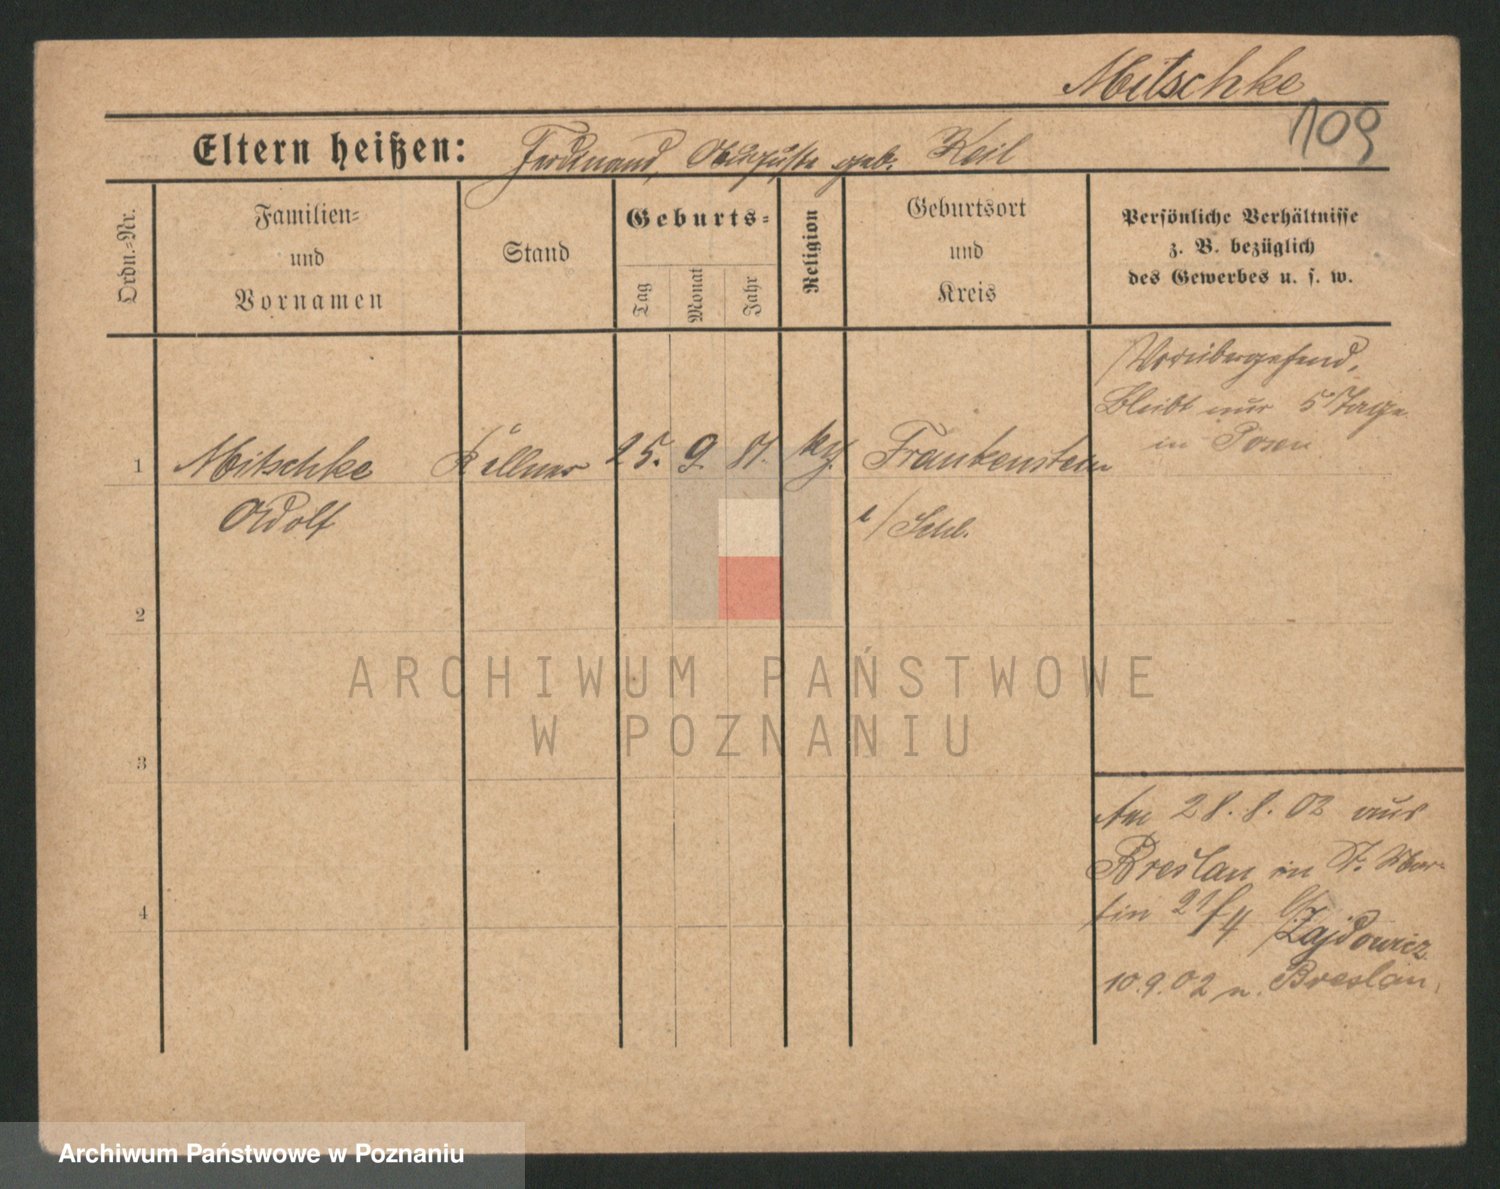 Mitschke
109
Eltern heißen: Ferdinand, Auguste geb. Keil
Ordn.-Nr.
Familien-
und
Vornamen
Stand
Geburts-
Tag
Monat
Jahr
Religion
Geburtsort
und
Kreis
Persönliche Verhältnisse
z. B. bezüglich
des Gewerbes u. s. w.
Vorübergehend,
bleibt nur 5 Tage
in Posen
1 Mitschke Kellner 25. 9. 81. Frankenstein
Adolf
i/Schl.
2
ARCHIWUM PAŃSTWOWE
W POZNANIU
3
Am 28.8.02 aus
Breslau in St. Mar-
tin 21 b/ Zajdowicz
10.9.02 n. Breslau.
4
Archiwum Państwowe w Poznaniu